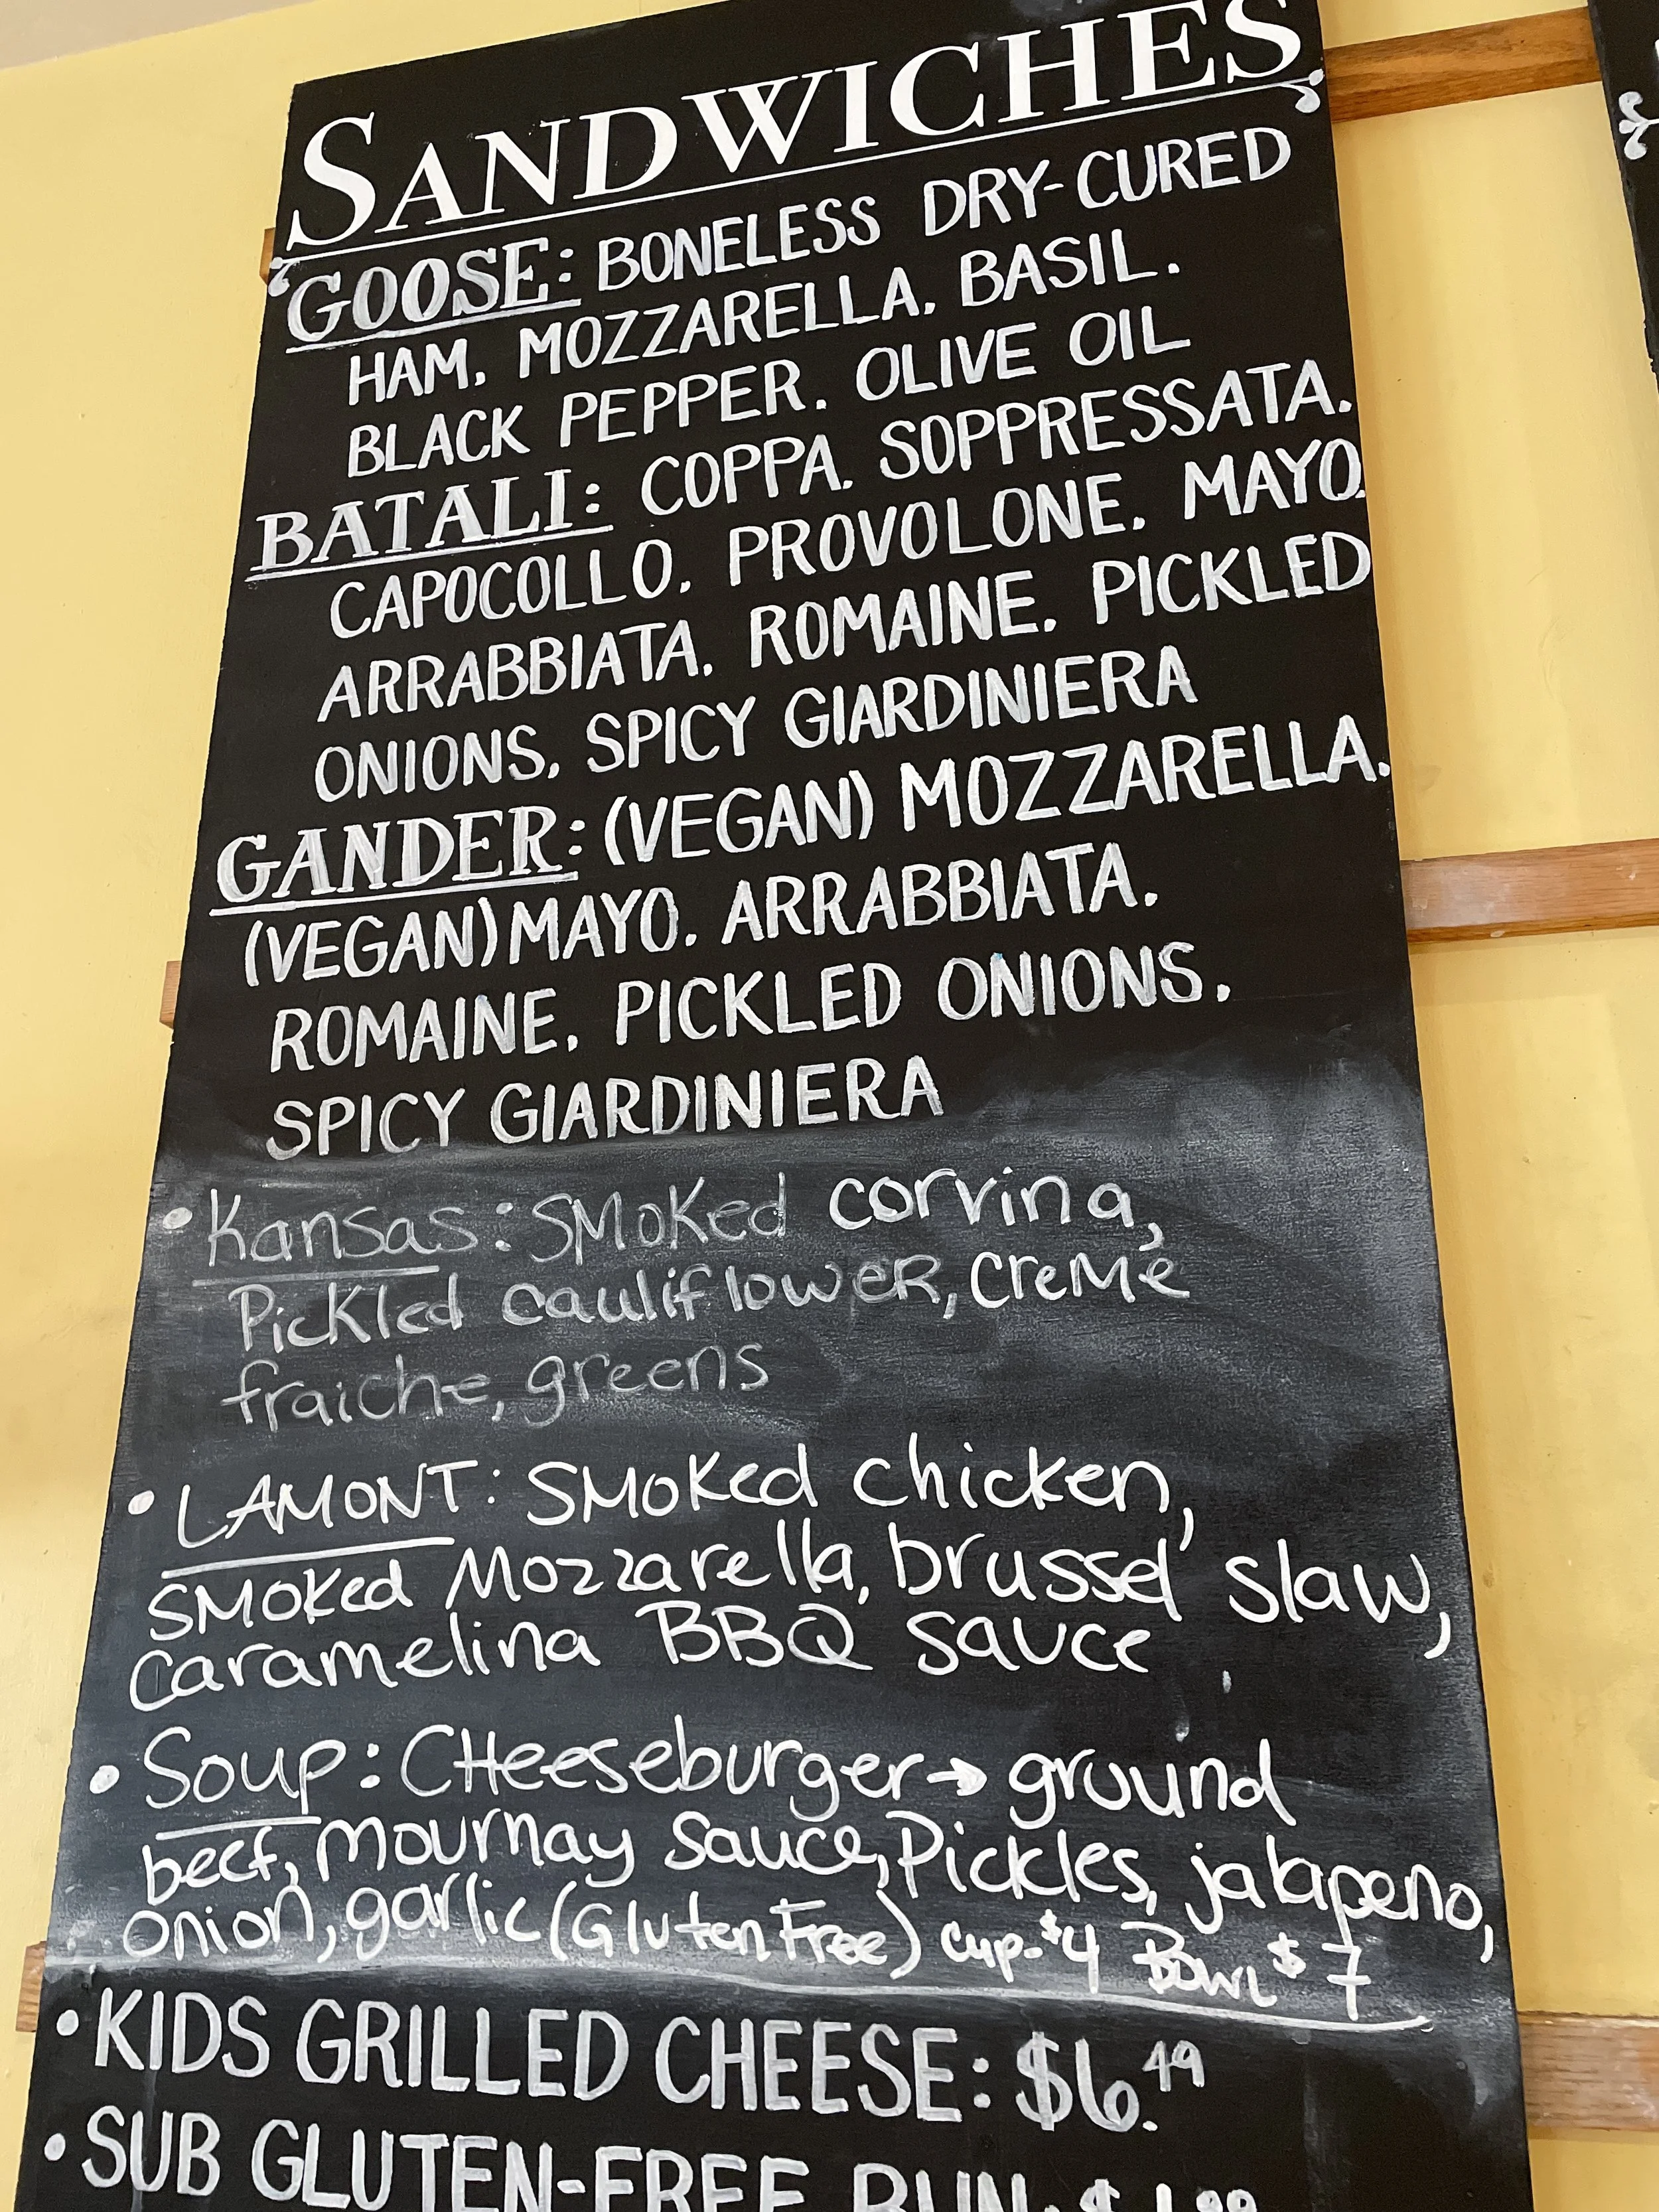 SANDWICHES
GOOSE: BONELESS DRY-CURED
HAM. MOZZARELLA. BASIL.
BLACK PEPPER. OLIVE OIL
BATALI: COPPA. SOPPRESSATA.
CAPOCOLLO. PROVOLONE. MAYO.
ARRABBIATA. ROMAINE. PICKLED
ONIONS. SPICY GIARDINIERA
GANDER: (VEGAN) MOZZARELLA.
(VEGAN) MAYO. ARRABBIATA.
ROMAINE. PICKLED ONIONS.
SPICY GIARDINIERA
• Kansas: SMoKed corvina,
Pickled cauliflowER, creMe
fraiche, greens
• LAMONT: SMoKed chicken,
SMOKed Mozzarella, brussel' slaw,
caramelina BBQ sauce
• Soup: CHeeseburger → ground
beef, mournay sauce, Pickles, jalapeno,
onion, garlic (Gluten Free) cup-$4 Bowl $7
• KIDS GRILLED CHEESE: $6.49
• SUB GLUTEN-FREE BUN: $1.99